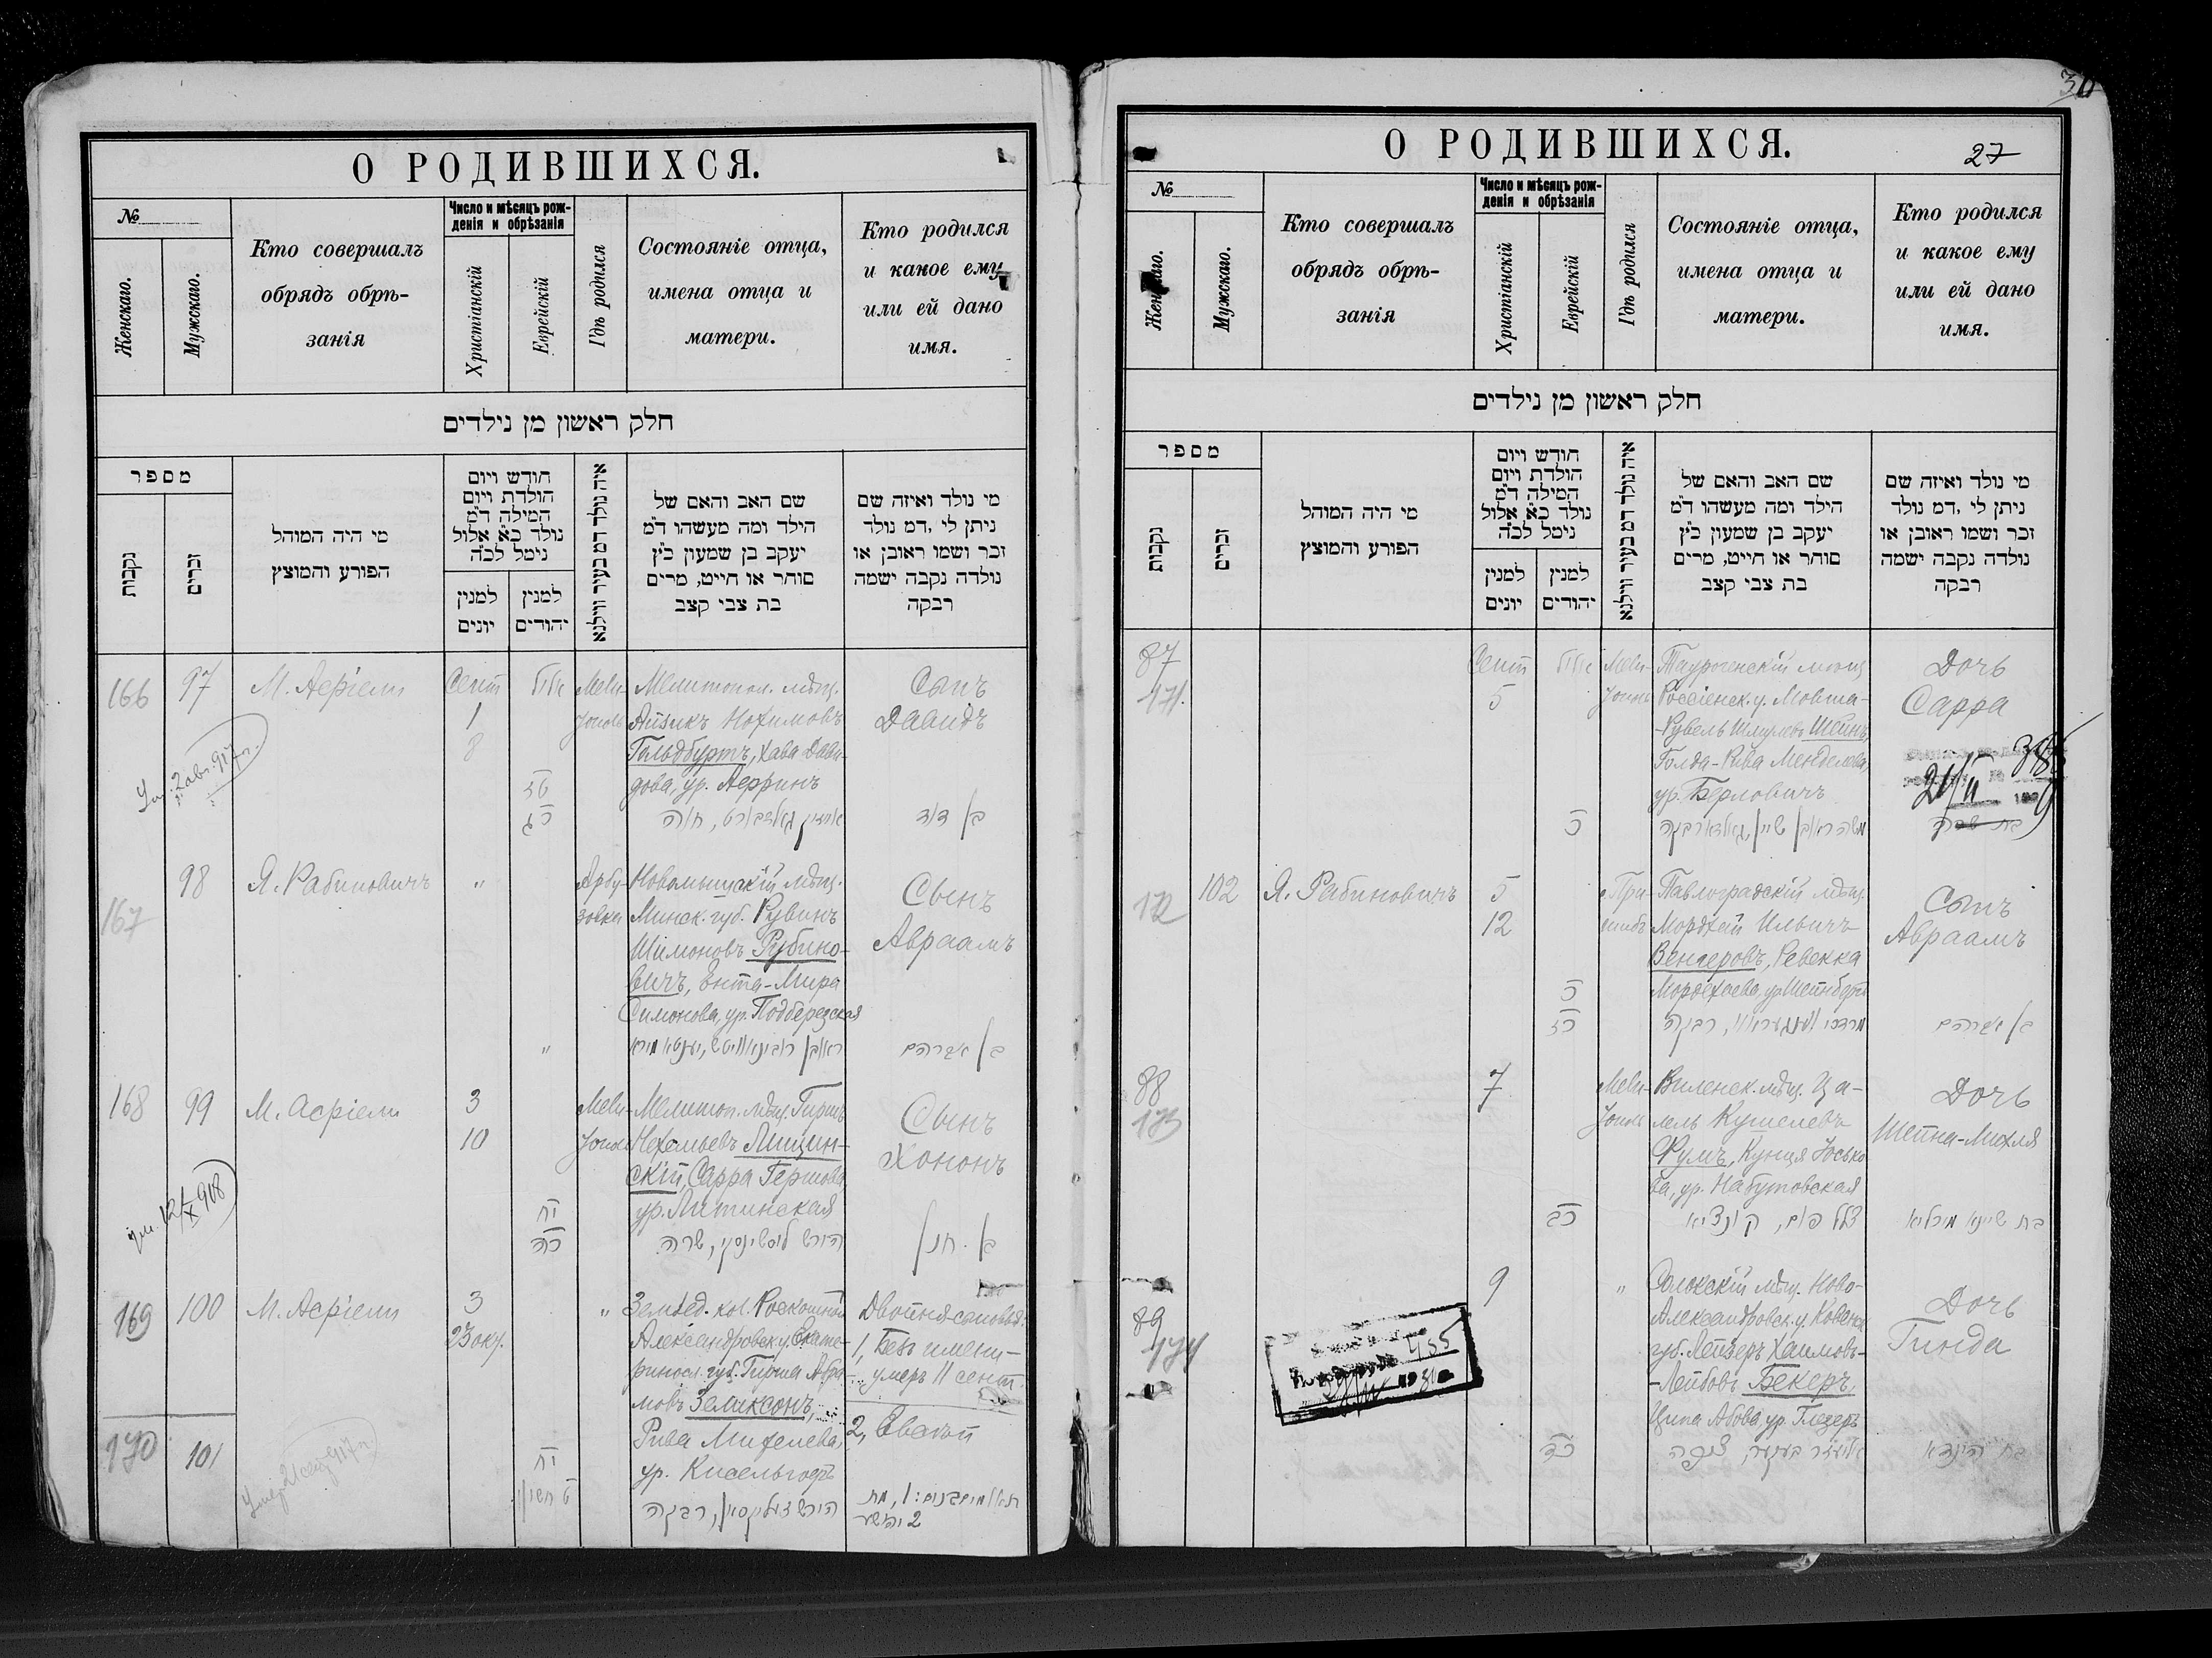 О РОДИВШИХСЯ.
№
Женскаго.
Мужскаго.
Кто совершалъ
обрядъ обрѣ-
занія
Число и мѣсяцъ рож-
денія и обрѣзанія
Христіанскій
Еврейскій
Гдѣ родился
Состояніе отца,
имена отца и
матери.
Кто родился
и какое ему
или ей дано
имя.
חלק ראשון מן נילדים
מספר
נקבות
זכרים
מי היה המוהל
הפורע והמוצץ
חודש ויום
הולדת ויום
המילה ד"מ
נולד כ"א אלול
נימל לכ"ה
למנין
יונים
למנין
יהודים
איה נולד דמ בעיר ווילנא
שם האב והאם של
הילד ומה מעשהו ד"מ
יעקב בן שמעון כ"ץ
סוחר או חייט, מרים
בת צבי קצב
מי נולד ואיזה שם
ניתן לי ,דמ נולד
זכר ושמו ראובן או
נולדה נקבה ישמה
רבקה
166
97
М. Аеріели
Сент
1
8
אלול
טז
כג
Мели-
тополь
Мелитопол. мѣщ.
Айзикъ Нохимовъ
Гольдбуртъ, Хава Дави-
дова, ур.
Сынъ
Давидъ
בן דוד
Ум. 2 авг. 917 г.
167
98
Я. Рабиновичъ
"
Арбу-
зовка
мѣщ.
Минск. губ. Рувинъ
Шимоновъ Рубино-
вичъ, Ента-Мира
Симонова, ур. Подберезская
"
Сынъ
Авраамъ
בן אברהם
168
99
М. Асріели
3
10
יח
כה
Мели-
тополь
Мелитоп. мѣщ. Гиршъ
Лищин-
скій, Сарра Гершова,
ур. Литинская
Сынъ
Хононъ
בן חנן
ум. 12/X 918
169
100
М. Асріели
3
23 окт.
יח
ט חשון
"
Землед. кол. Роскошной
Александровск. у. Екате-
ринос. губ. Гирша Абра-
мовъ Зеликсонъ,
Рива Михелева,
ур. Кисельгофъ
הירש זעליקסאן, רבקה
Двойня-сыновья:
1, Безъ имени –
умеръ 11 сент.
2, Евсей
170
101
Умеръ 917 г.
30
О РОДИВШИХСЯ.
27
№
Женскаго.
Мужскаго.
Кто совершалъ
обрядъ обрѣ-
занія
Число и мѣсяцъ рож-
денія и обрѣзанія
Христіанскій
Еврейскій
Гдѣ родился
Состояніе отца,
имена отца и
матери.
Кто родился
и какое ему
или ей дано
имя.
חלק ראשון מן נילדים
מספר
נקבות
זכרים
מי היה המוהל
הפורע והמוצץ
חודש ויום
הולדת ויום
המילה ד"מ
נולד כ"א אלול
נימל לכ"ה
למנין
יונים
למנין
יהודים
איה נולד דמ בעיר ווילנא
שם האב והאם של
הילד ומה מעשהו ד"מ
יעקב בן שמעון כ"ץ
סוחר או חייט, מרים
בת צבי קצב
מי נולד ואיזה שם
ניתן לי ,דמ נולד
זכר ושמו ראובן או
נולדה נקבה ישמה
רבקה
87
171.
Сент
5
אלול
כ
Мели-
тополь
Таурогенскій мѣщ.
Россіенск. у. Мовша-
-Рувель Шейнъ,
Голда-Рива Менделева,
ур. Берловичъ
Дочь
Сарра
בת שרה
172
102
Я. Рабиновичъ
5
12
כ
כז
При-
шибъ
Павлоградскій мѣщ.
Мордхай Ильичъ
Венгеровъ, Ревекка
Мордехаева, ур. Шейнбергъ
Сынъ
Авраамъ
בן אברהם
88
173
7
כב
Мели-
тополь
Виленск. мѣщ. Ца-
лель Кушелевъ
Фумъ, Кунця Юсько-
ва, ур. Набутовская
Дочь
Шейна-Михля
89
174
9
כד
"
мѣщ. Ново-
Александровск. у. Ковенск.
губ. Лейзеръ Хаимовъ-
-Лейбовъ Бекеръ,
Ципа Абова, ур. Глезеръ
Дочь
Гинда
בת הינדא